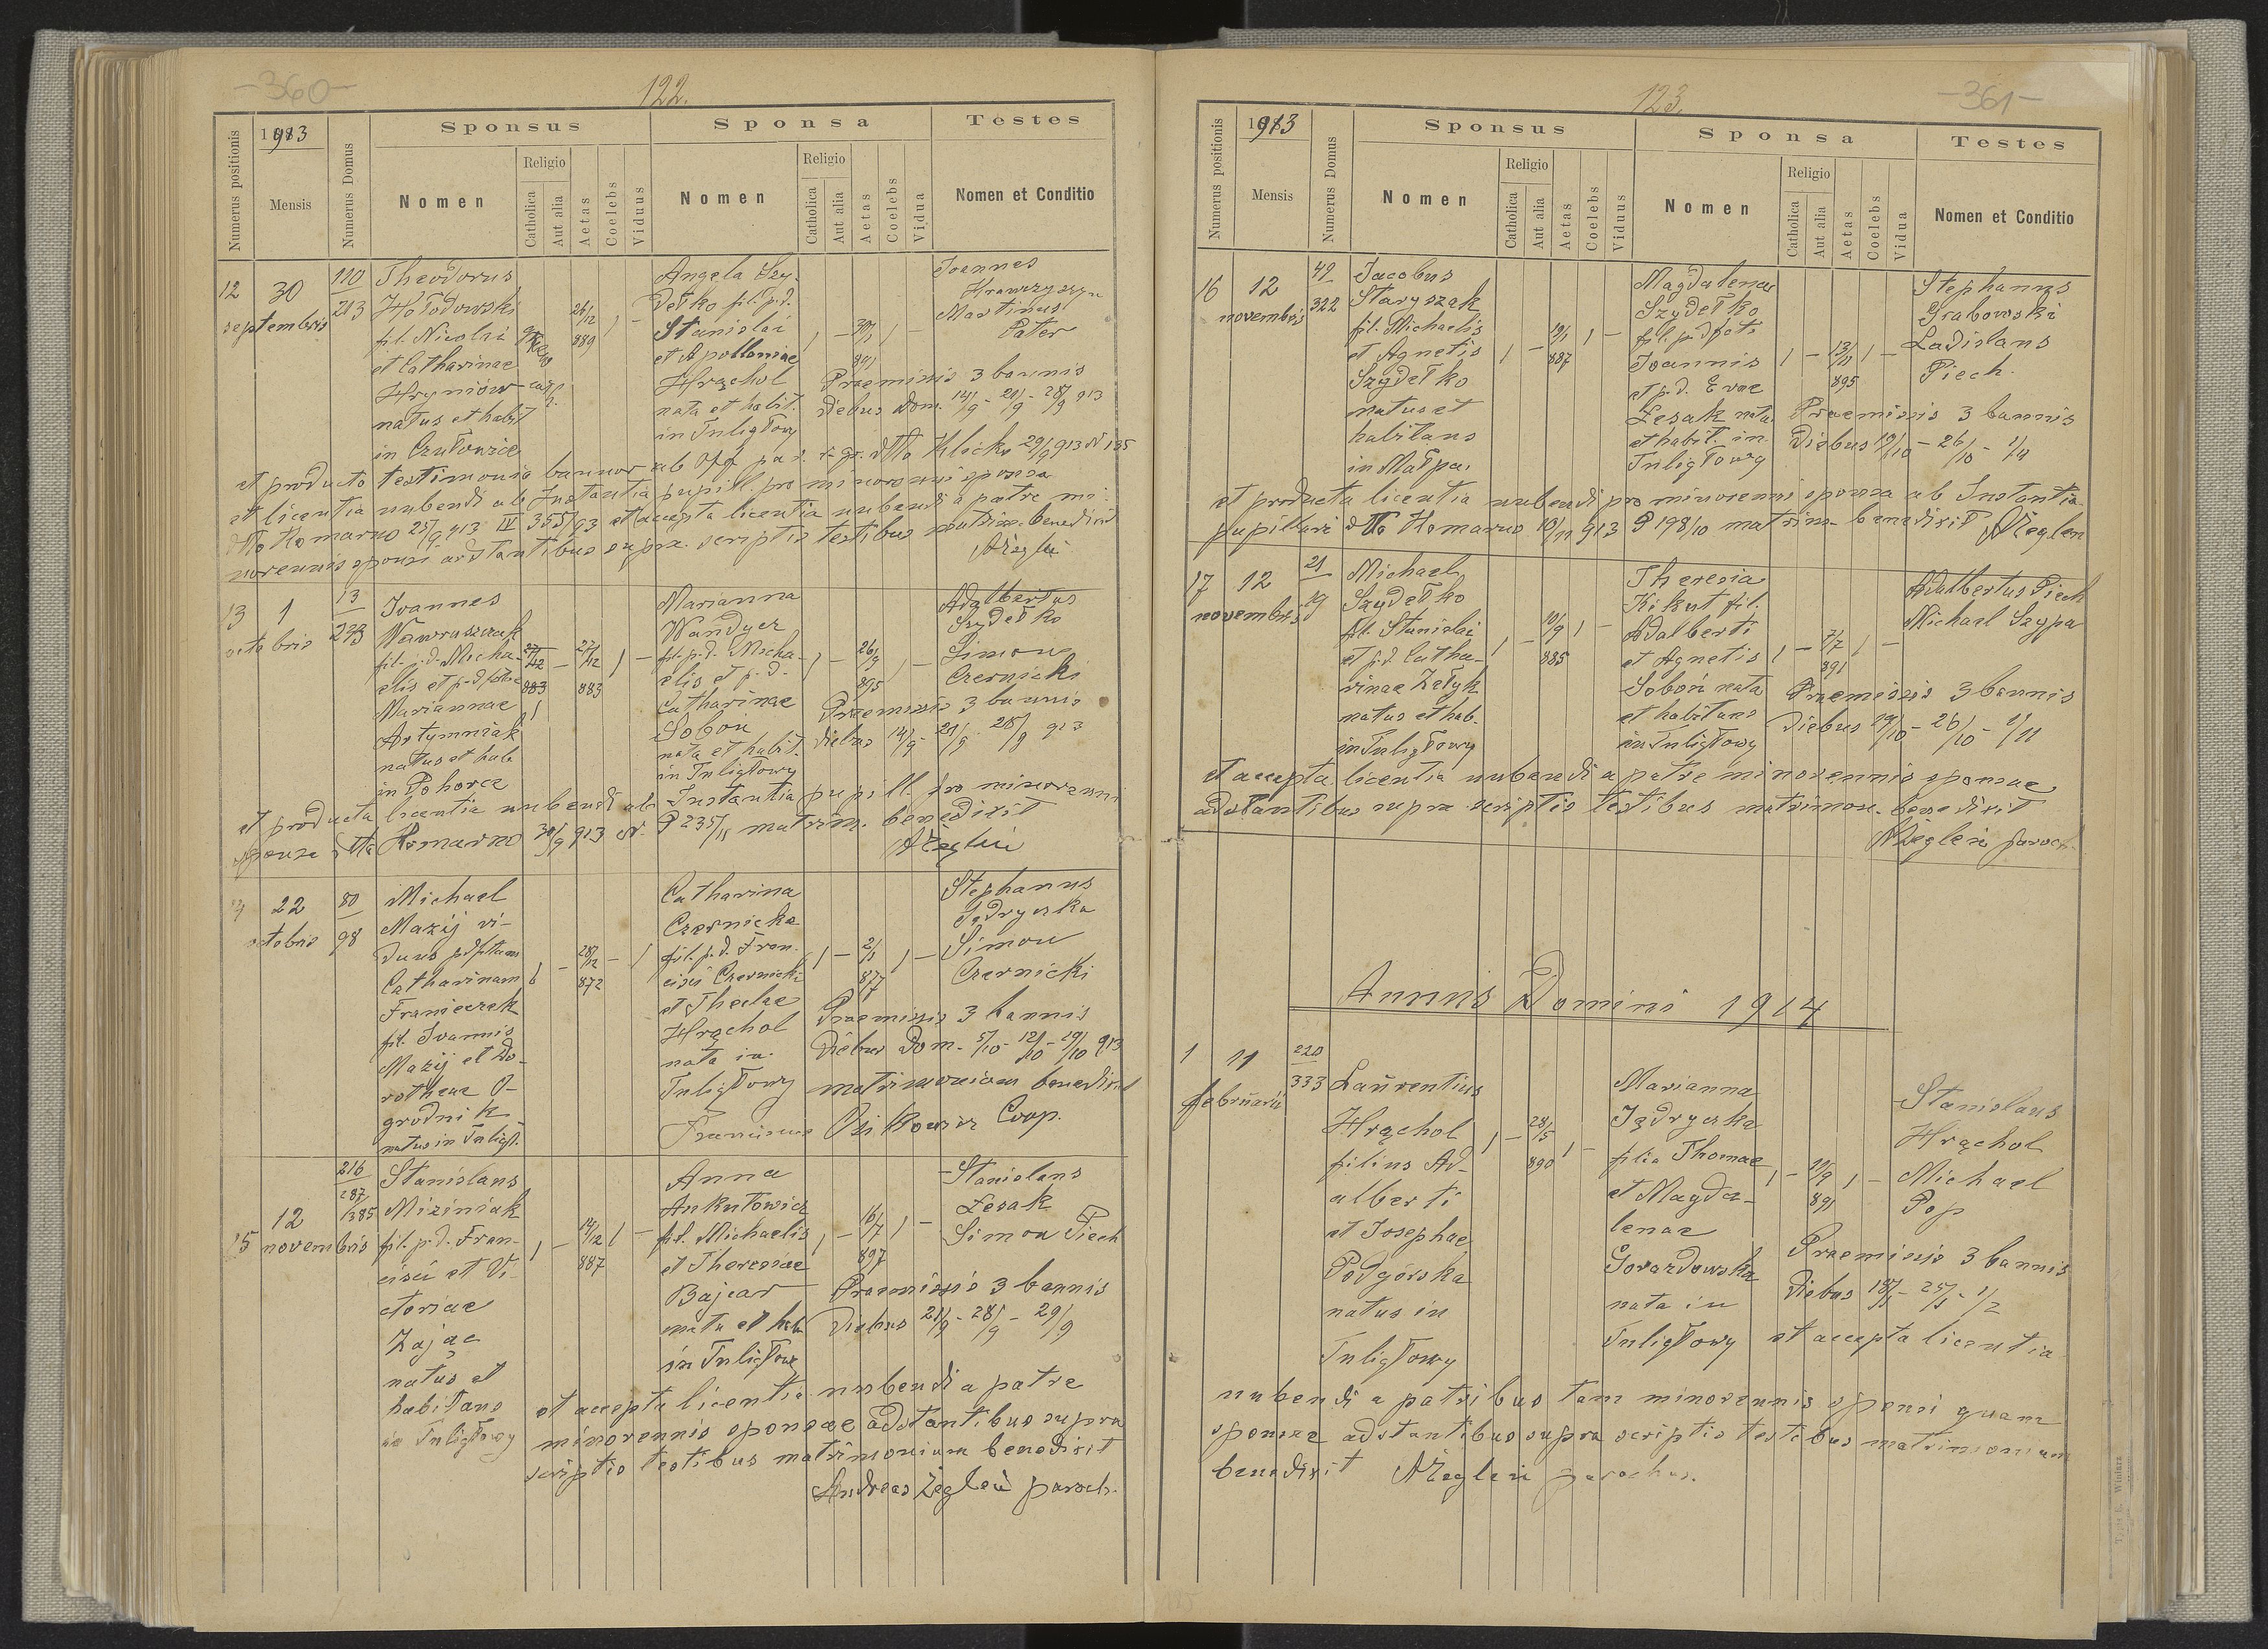 -360-
122.
Numerus positionis
1913
Mensis
Numerus Domus
Sponsus
Nomen
Religio
Catholica
Aut alia
Aetas
Coelebs
Viduus
Sponsa
Nomen
Religio
Catholica
Aut alia
Aetas
Coelebs
Vidua
Testes
Nomen et Conditio
12 30 septembris
110
213
Theodorus
Hołodowski
fil. Nicolai
et Catharinae
Hryniów
natus et habit
in
26/12 889
Angela Szy-
dełko fil. p.d.
Stanislai
et Apolloniae
Hrąchol
nata et habit.
in Tuligłowy
30/1 891
Joannes
Martinus
Pater
Praemissis 3 bannis
diebus Dom. 14/9 - 21/9 - 28/9 913
et producto testimonio bannor ab Off par. r. gr. dtto Klicko 29/9 913 N 135
et licentia nubendi ab Instantia pupill. pro minorenni sponsa
dtto Komarno 25/9 913 IV 355/93 et accepta licentia nubendi a patre mi-
norennis sponsi adstantibus supra scriptis testibus matrim. benedixit
AŻegleń
13 1 octobris
13
223
Joannes
Wawruszczak
fil. p.d. Micha-
elis et p.d.
Mariannae
Artymniak
natus et hab
in Pohorce
27/12 883
27/12 883
Marianna
Wandycz
fil. p.d. Micha-
elis et p.d.
Catharinae
Soboń
nata et habit.
in Tuligłowy
26/9 895
Adalbertus
Szydełko
Simon
Czernicki
Praemissis 3 bannis
diebus 14/9 - 21/9 - 28/9 913
et producta licentia nubendi ab Instantia pupill. pro minorenni
sponsa dtto Komarno 30/9 913 N. P 235/11 matrim. benedixit
AŻegleń
22 octobris
80
98
Michael
Mazij vi-
duus
Catharinam
Franieczek
fil. Joannis
Mazij et Do-
rotheae O-
grodnik
natus in Tuligł.
28/12 872
Catharina
Czernicka
fil. p.d. Fran-
cisci Czernicki
et Theclae
Hrąchol
nata in
Tuligłowy
2/1 877
Stephanus
Jądryszka
Simon
Czernicki
Praemissis 3 bannis
diebus Dom. 5/10 - 12/10 - 19/10 913
matrimonium benedixit
Franciscus Coop.
15 12 novembris
216
287/385
Stanislaus
Miziniak
fil. p.d. Fran-
cisci et Vi-
ctoriae
Zając
natus et
habitans
in Tuligłowy
14/12 887
Anna
Ankutowicz
fil. Michaelis
et Theresiae
Bajcar
nata et hab
in Tuligłowy
16/7 897
Stanislaus
Lesak
Simon Piech
Praemissis 3 bannis
diebus 21/9 - 28/9 - 29/9
et accepta licentia nubendi a patre
minorennis sponsae adstantibus supra
scriptis testibus matrimonium benedixit
Andreas Żegleń paroch.
123.
-361-
Numerus positionis
1913
Mensis
Numerus Domus
Sponsus
Nomen
Religio
Catholica
Aut alia
Aetas
Coelebs
Viduus
Sponsa
Nomen
Religio
Catholica
Aut alia
Aetas
Coelebs
Vidua
Testes
Nomen et Conditio
16 12 novembris
49
322
Jacobus
Staryszak
fil. Michaelis
et Agnetis
Szydełko
natus et
habitans
in Małpa.
19/1 887
Magdalena
Szydełko
fil. p.d.
Joannis
et p.d. Evae
Lesak nata
et habit. in
Tuligłowy
13/11 895
Stephanus
Grabowski
Ladislaus
Piech
Praemissis 3 bannis
diebus 19/10 - 26/10 - 1/11
et producta licentia nubendi pro minorenni sponsa ab Instantia
pupillari dtto Komarno 10/11 913 P 198/10 matrim benedixit AŻegleń
17 12 novembris
21
19
Michael
Szydełko
fil. Stanislai
et p.d. Catha-
rinae Załyk
natus et hab.
in Tuligłowy
10/9 885
Theresia
Kikut fil.
Adalberti
et Agnetis
Soboń nata
et habitans
in Tuligłowy
7/7 891
Adalbertus Piech
Michael Szypa
Praemissis 3 bannis
diebus 19/10 - 26/10 - 1/11
et accepta licentia nubendi a patre minorennis sponsae
adstantibus supra scriptis testibus matrimon. benedixit
AŻegleń paroch.
Annus Domini 1914
1 11 februarii
220
333
Laurentius
Hrąchol
filius Ad-
alberti
et Josephae
Podgórska
natus in
Tuligłowy
28/5 890
Marianna
Jądryszka
filia Thomae
et Magda-
lenae
Gwazdowska
nata in
Tuligłowy
19/9 891
Stanislaus
Hrąchol
Michael
Pop
Praemissis 3 bannis
diebus 18/1 - 25/1 - 1/2
et accepta licentia
nubendi a patribus tam minorennis sponsi quam
sponsae adstantibus supra scriptis testibus matrimonium
benedixit AŻegleń parochus.